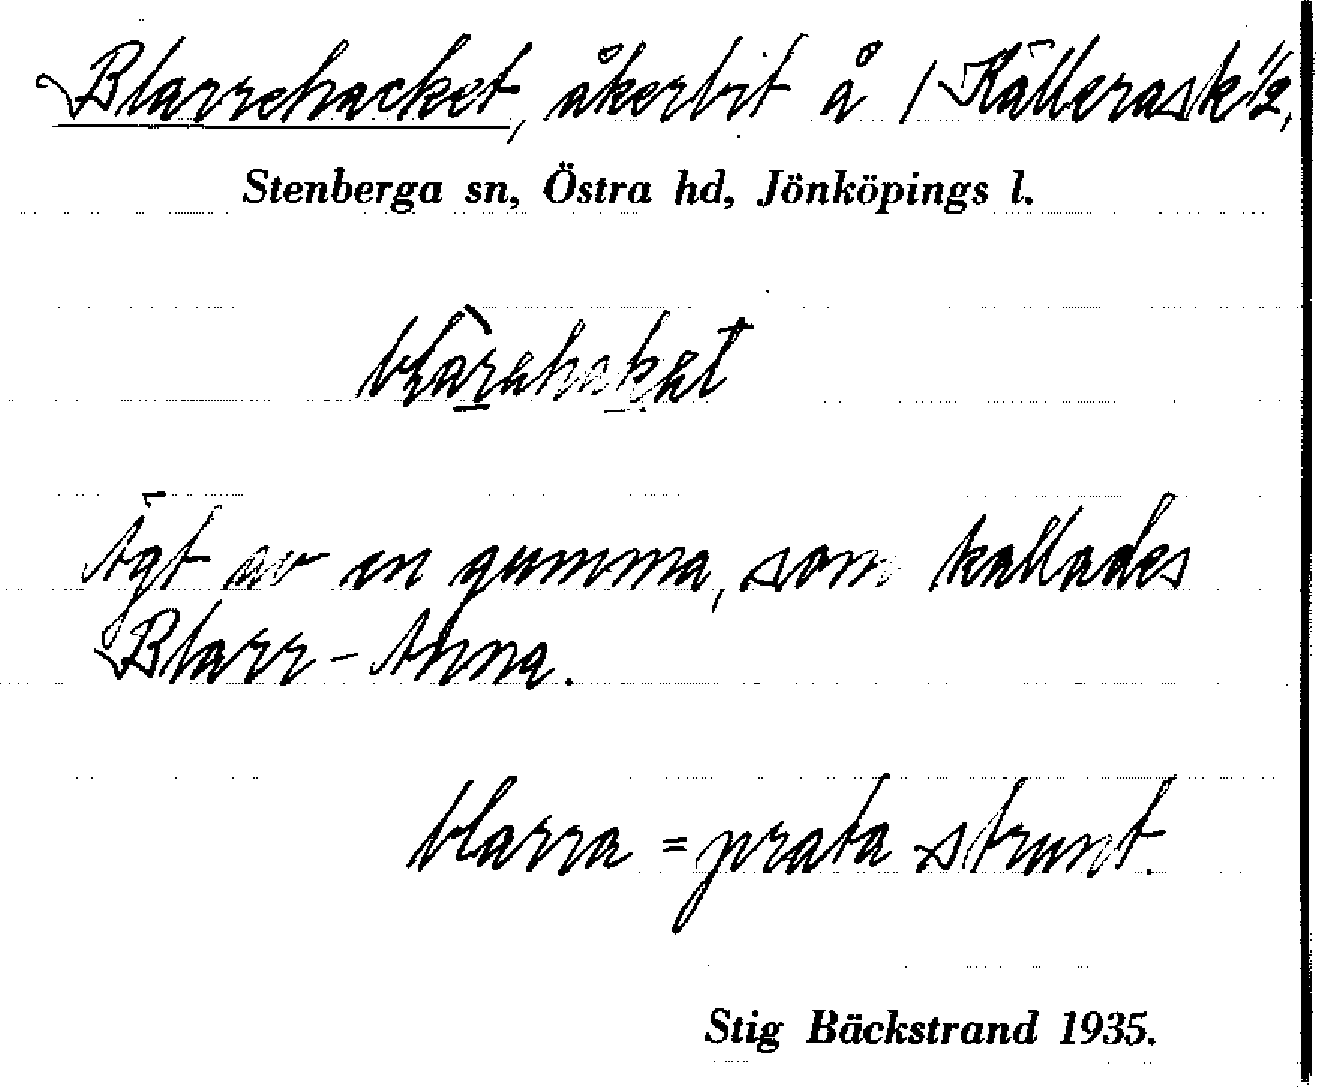 Blarrehacket, åkerbit å 1 Källerask ½,
Stenberga sn, Östra hd, Jönköpings l.
Ägt av en gumma, som kallades
Blarr-Anna.
blarra = prata strunt.
Stig Bäckstrand 1935.